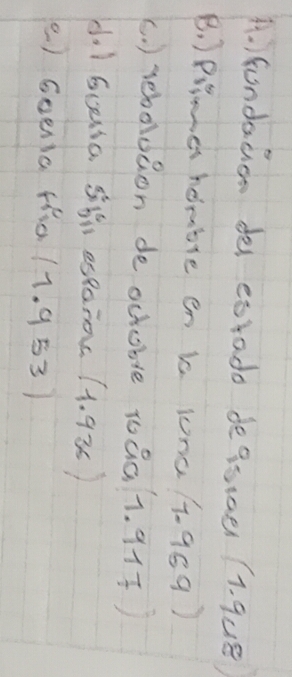 A.) fundación del estado de israel (1.948)
B.) Primer hombre en la luna (1.969)
C.) rebolución de octubre rucia (1.917)
d.) Guerra sibil española (1.936)
e.) Guerra fría (1.953)